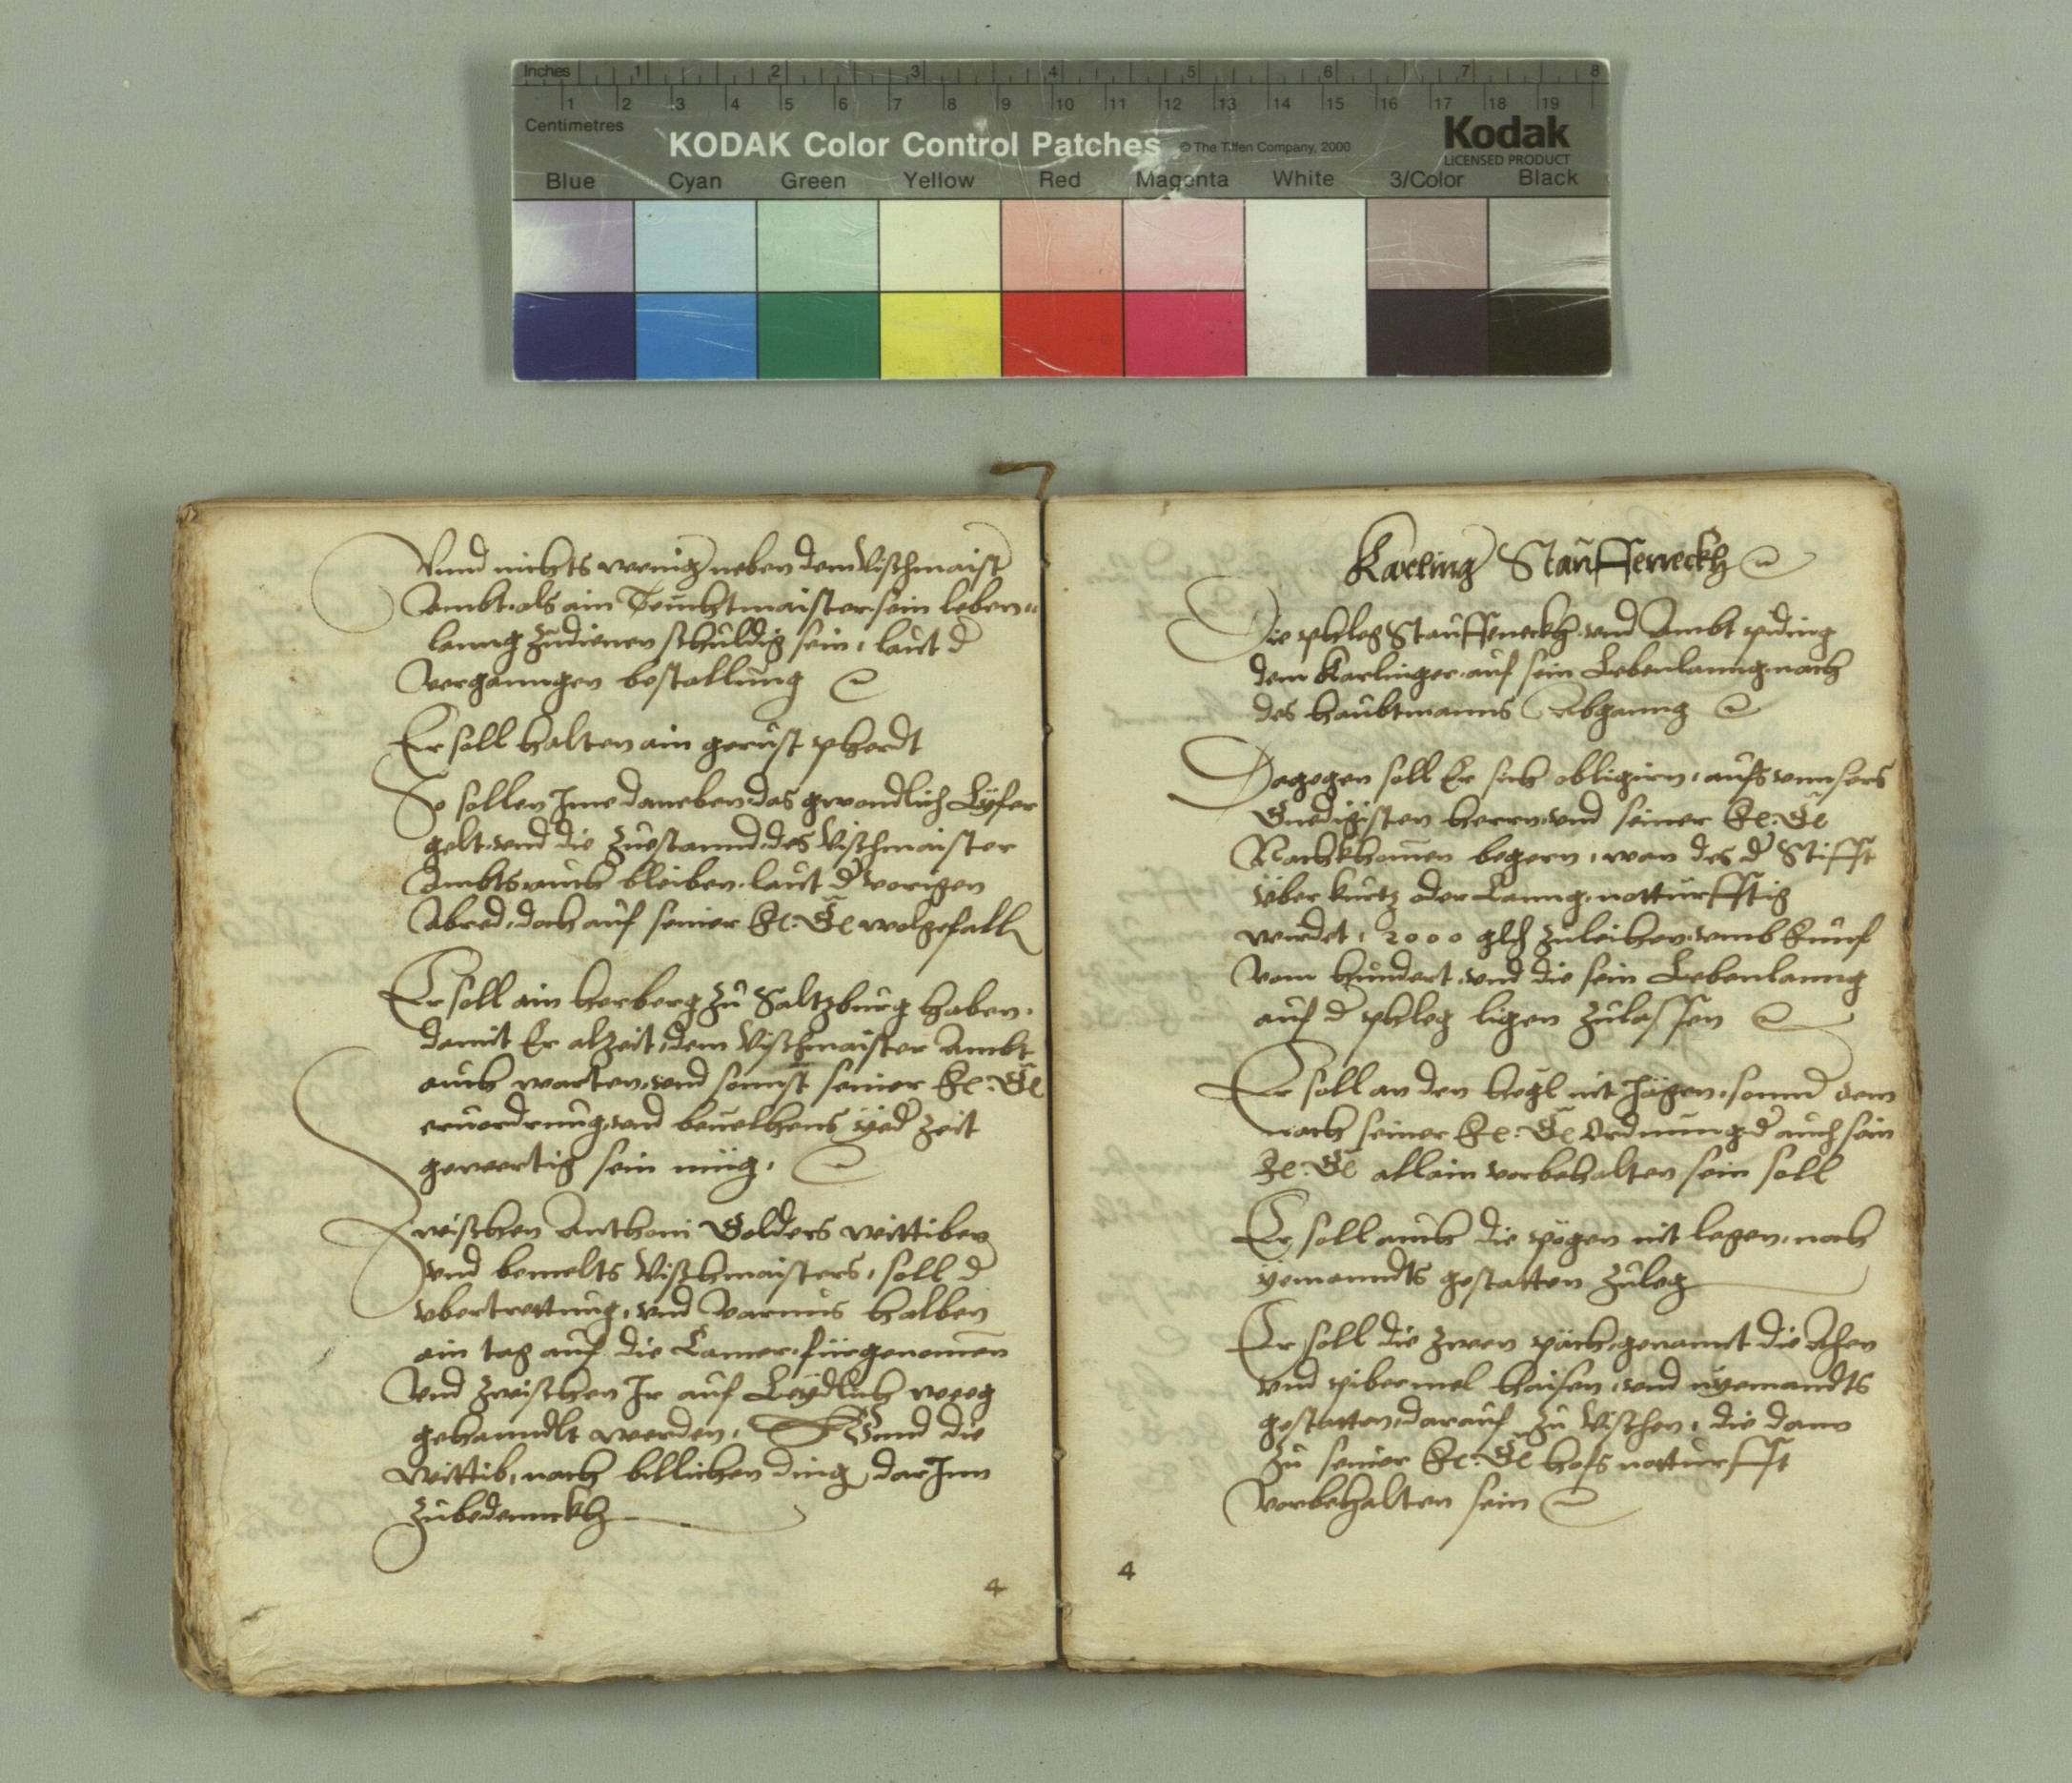 Inches 1 2 3 4 5 6 7 8
1 2 3 4 5 6 7 8 9 10 11 12 13 14 15 16 17 18 19
Centimetres
KODAK Color Control Patches © The Tiffen Company, 2000 Kodak
LICENSED PRODUCT
Blue Cyan Green Yellow Red Magenta White 3/Color Black
Vnnd nichts wenig neben dem Vischmaist
Ambt als ain Teuchtmaister sein leben
lanng zudienen schuldig sein, laut d
verganngen bestallung
Er soll halten ain gerust pherdt
So sollen Ime daneben das gwondlich Lyfer
gelt vnd die Zuestannd des Vischmaister
Ambts auch bleiben laut der vorigen
Abred, doch auf seiner Fe: Ge wolgefall
Er soll ain herberg zu Saltzburg haben,
damit Er alzeit dem Vischmaister Ambt
auch warten vnd sonnst seiner Fe: Ge
eruordrung vnd beuelhens yed zeit
gewertig sein müg,
Zwischen Anthoni Golders wittiben
vnd bemelts Vischmaisters, soll d
vbertrettung, vnd varnus halben
ain tag auf die Camer fürgenomen
Vnd zwischen Ir auf Leydlich weeg
gehanndlt werden, Vnnd die
wittib, nach billichen ding darInn
zubedennckh
4
Karling Stauffenneckh
Die phleg Stauffeneckh vnd Ambt piding
dem Karlinger auf sein Lebenlanng nach
des haubtmanns Abganng
Dagegen soll Er sich obligirn, aufs vnnsers
Gnedigisten herrn vnd seiner Fe: Ge
Nachkhomen begern, wan des d Stifft
über kurtz oder Lanng, notturfftig
wirdet, 2000 zuleihen vmb Funf
vom hundert, vnd die sein Lebenlanng
auf d phleg ligen zulassen
Er soll an den hegl nit Jagen, sonnd dem
nach seiner Fe: Ge Ordnung d auch sein
Fe: Ge allain vorbehalten sein soll
Er soll auch die pögen nit legen, noch
yemanndts gestatten zuleg
Er soll die zwen päch genannt die Ahen
vnd haisen, vnd nyemandts
gestatten, darauf zu vischen, die dann
zu seiner Fe: Ge hofs notturfft
vorbehalten sein
4